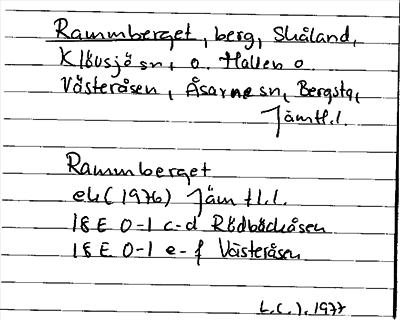 Rammberget, berg, Skåland,
Klövsjö sn, o. Hallen o.
Västeråsen, Åsarne sn, Bergsta,
Jämtl.l.
Rammberget
ek (1976) Jämtl.l.
18E 0-1 c-d Rödbäcksåsen
18E 0-1 e-f Västeråsen
L.C.J. 1977